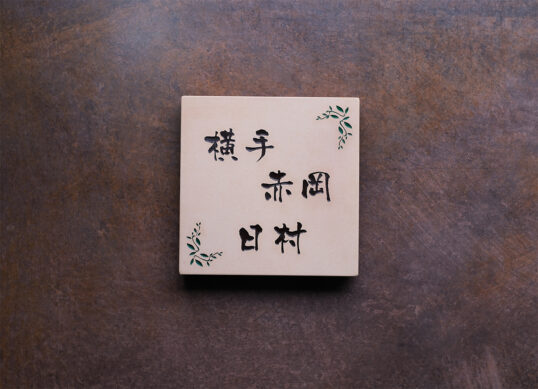 横手
赤岡
日村